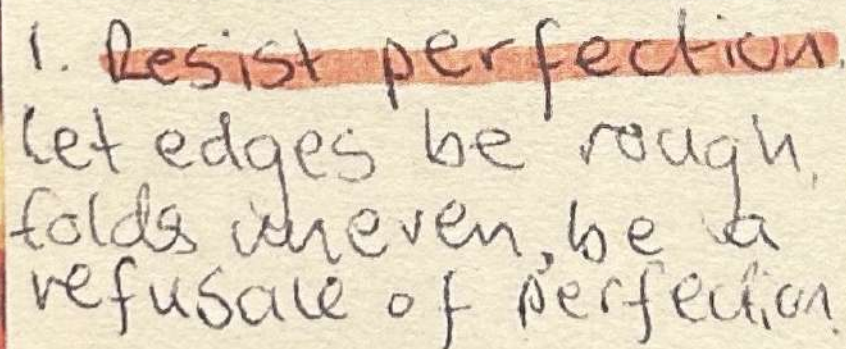 1. Resist perfection.
let edges be rough,
folds uneven, be a
refusale of perfection.